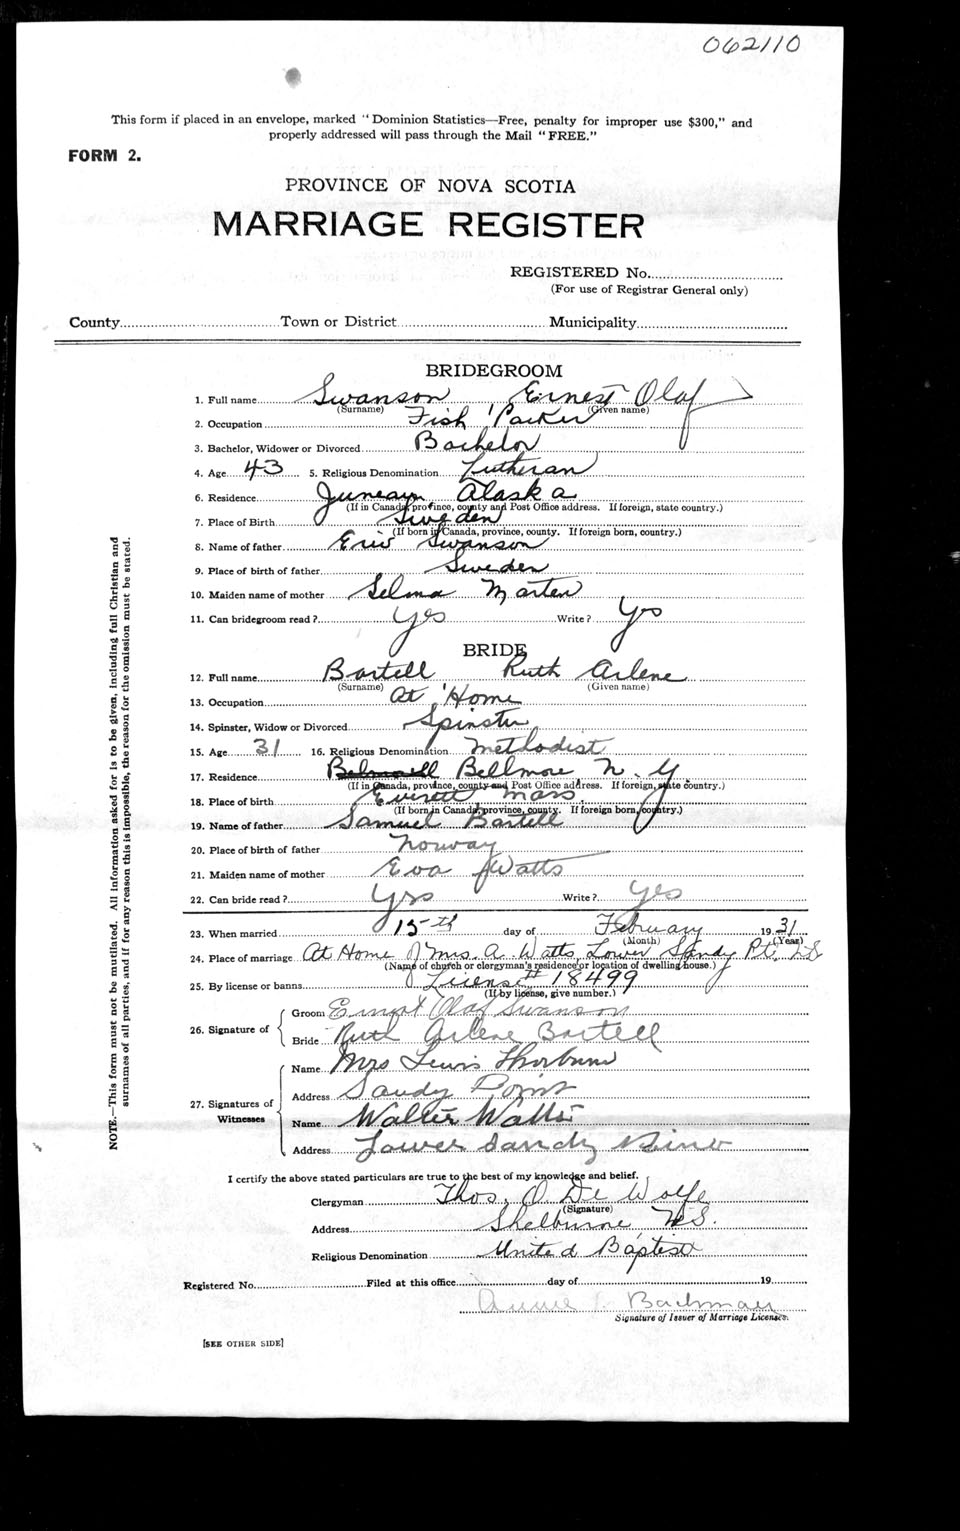 062110
This form if placed in an envelope, marked "Dominion Statistics—Free, penalty for improper use $300," and
properly addressed will pass through the Mail "FREE."
FORM 2.
PROVINCE OF NOVA SCOTIA
MARRIAGE REGISTER
REGISTERED No.
(For use of Registrar General only)
County Town or District Municipality
BRIDEGROOM
1. Full name Swanson Ernest Olaf
(Surname) (Given name)
2. Occupation Fish Packer
3. Bachelor, Widower or Divorced Bachelor
4. Age 43 5. Religious Denomination Lutheran
6. Residence Juneau Alaska
(If in Canada, province, county and Post Office address. If foreign, state country.)
7. Place of Birth Sweden
(If born in Canada, province, county. If foreign born, country.)
8. Name of father Eric Swanson
9. Place of birth of father Sweden
10. Maiden name of mother Selma Marten
11. Can bridegroom read? Yes Write? Yes
BRIDE
12. Full name Bartell Ruth Arlene
(Surname) (Given name)
13. Occupation At Home
14. Spinster, Widow or Divorced Spinster
15. Age 31 16. Religious Denomination Methodist
17. Residence Bellmore N. Y.
(If in Canada, province, county and Post Office address. If foreign, state country.)
18. Place of birth Everett Mass
(If born in Canada, province, county. If foreign born, country.)
19. Name of father Samuel Bartell
20. Place of birth of father Norway
21. Maiden name of mother Eva Watts
22. Can bride read? Yes Write? Yes
23. When married 15th day of February 1931
(Month) (Year)
24. Place of marriage At Home of Mrs. A. Watts, Lower Sandy Pt.
(Name of church or clergyman's residence or location of dwelling house.)
25. By license or banns License # 18499
(If by license, give number.)
26. Signature of
Groom Ernest Olaf Swanson
Bride Ruth Arlene Bartell
27. Signatures of
Witnesses
Name Mrs Lewis Thorburn
Address Sandy Point
Name Walter Watts
Address Lower Sandy Point
I certify the above stated particulars are true to the best of my knowledge and belief.
Clergyman Thos. O. De Wolfe
(Signature)
Address Shelburne, N.S.
Religious Denomination United Baptist
Registered No. Filed at this office day of 19
Annie Bachman
Signature of Issuer of Marriage Licenses.
[SEE OTHER SIDE]
NOTE.—This form must not be mutilated. All information asked for is to be given, including full Christian and
surnames of all parties, and if for any reason this is impossible, the reason for the omission must be stated.